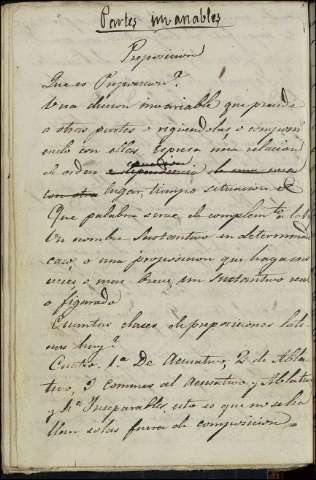 Partes invariables
Preposicion
Que es Preposicion?
Una diccion invariable que precede
a otras partes o rigiendolas o componi
endo con ellas. Espresa una relacion
de orden
lugar, tiempo situacion &
Que palabra sirve de complemto a la
Un nombre Sustantivo en determinado
caso, o una proposicion que haga
veces o mas breve, un Sustantivo
o figurado
Cuantas clases de preposiciones lati
nas hay?
Cuatro, 1a De Acusativo, 2 de Abla
tivo, 3 comunes al Acusativo y Ablativo
y 4a Inseparables, esto es que no se ha
llan solas fuera de composicion.